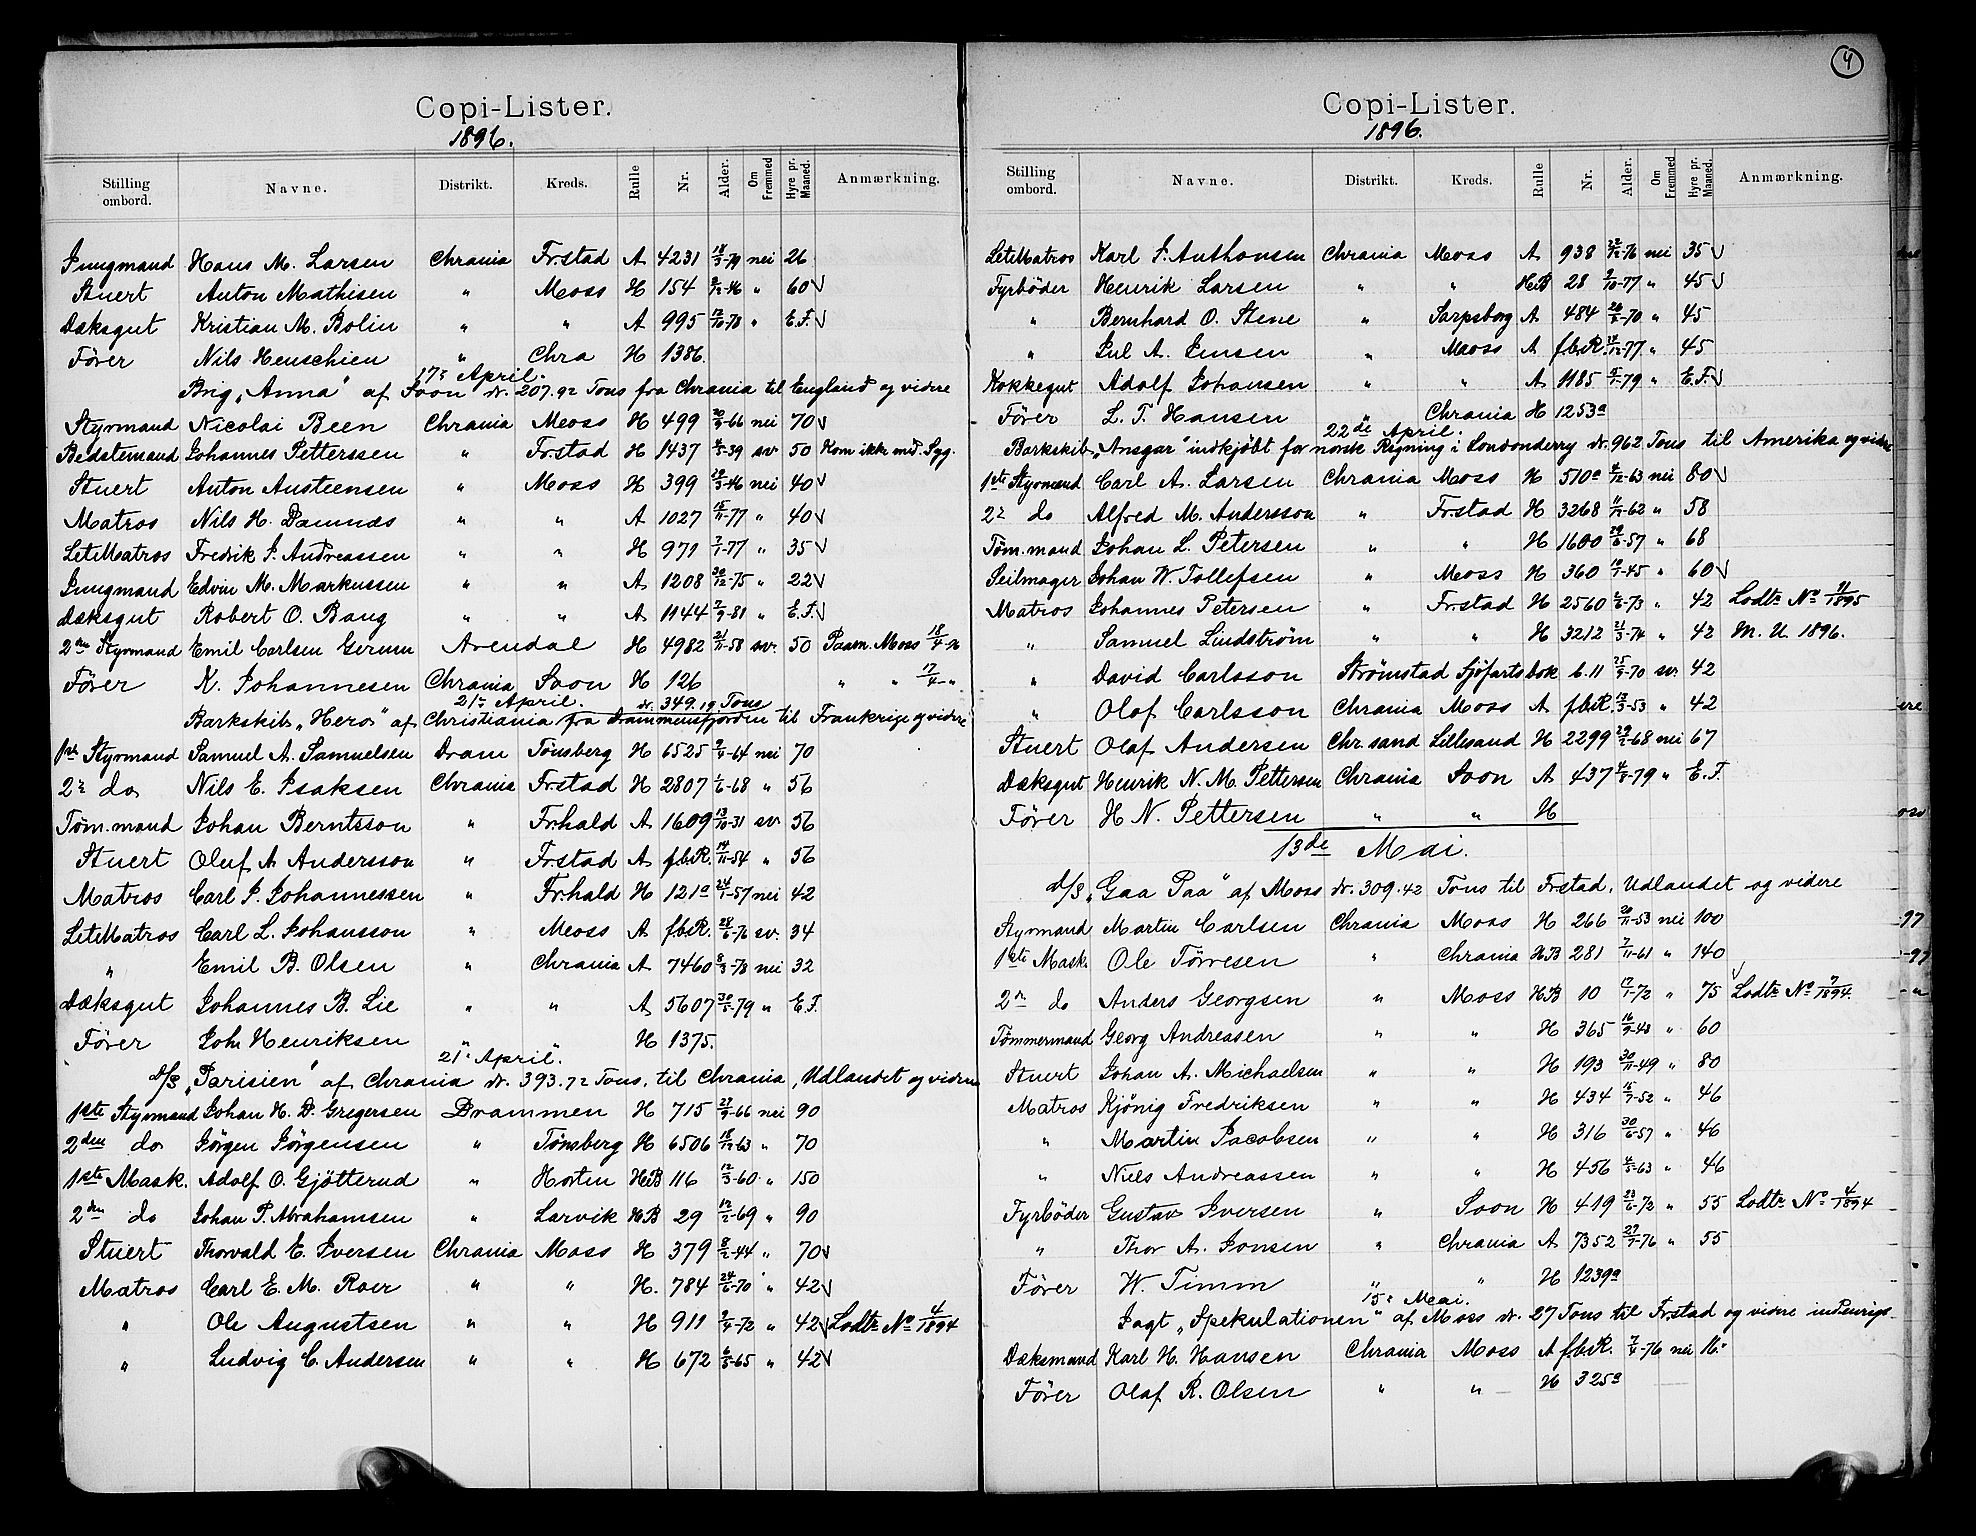 Copi-Lister.
1896.
Stilling ombord. Navne. Distrikt. Kreds. Rulle Nr. Alder. Om Fremmed Hyre pr. Maaned. Anmærkning.
Jungmand Hans M. Larsen Chrania Frstad A 4231 18/3-79 nei 26
Stuert Anton Mathisen " Moss H 154 2/12-46 " 60 √
Dæksgut Kristian M. Bolin " " A 995 12/10-78 " E.F. √
Fører Nils Henschien " Chra H 1386.
17de April.
Brig „Anna" af Soon dr. 207.92 Tons fra Chrania til England og videre
Styrmand Nicolai Been Chrania Moss H 499 30/3-66 nei 70 √
Bedstemand Johannes Petterssen " Frstad H 1437 4/5-39 sv 50 Kom ikke med. Syg.
Stuert Anton Austeensen " Moss H 399 19/3-46 nei 40 √
Matros Nils H. Damnæs " " A 1027 15/11-77 " 40 √
LetMatros Fredrik J. Andreassen " " H 971 7/1-77 " 35 √
Jungmand Edvin M. Markussen " " A 1208 30/12-75 " 22 √
Dæksgut Robert O. Bang " " A 1144 7/9-81 " E.F. √
2den Styrmand Emil Carlsen Gerum Arendal H 4982 21/11-58 sv. 50 Paam. Moss 18/4-96
Fører K. Johannesen Chrania Soon H 126 " " 17/4-"
21de April. dr. 349.19 Tons
Barkskib „Hero" af Christiania fra Drammensfjorden til Frankrige og videre
1ste Styrmand Samuel A. Samuelsen Dram Tønsberg H 6525 9/4-64 nei 70
2n do Nils E. Isaksen Chrania Frstad H 2807 1/6-68 " 56
Tøm.mand Johan Berntsson " Frhald A 1609 13/10-31 sv. 56
Stuert Oluf A. Andersson " Frstad A fbR. 14/11-54 " 56
Matros Carl J. Johannessen " Frhald H 121a 24/1-57 nei 42
LetMatros Carl L. Johansson " Moss A fbR. 28/6-76 sv. 34
" Emil B. Olsen " Chrania A 7460 8/3-78 nei 32
Dæksgut Johannes B. Lie " " A 5607 30/5-79 " E.F.
Fører Joh. Henriksen " " H 1375.
21de April.
d/s „Parisien" af Chrania dr. 393.72 Tons, til Chrania, Udlandet og videre
1ste Styrmand Johan H. D. Gregersen Drammen H 715 27/9-66 nei 90
2den do Jørgen Jørgensen " Tønsberg H 6506 18/12-63 " 70
1ste Mask. Adolf O. Gjøtterud " Horten HB 116 12/3-60 " 150
2den do Johan P. Abrahamsen " Larvik HB 29 12/2-69 " 90
Stuert Thorvald E. Iversen Chrania Moss H 379 8/2-44 " 70 √
Matros Carl E. M. Roer " " H. 784 24/6-70 " 42 √
" Ole Augustsen " " H 911 9/4-72 " 42 √ Lodtr. No 4/1894
" Ludvig C. Andersen " " H 672 6/5-65 " 42 √
4
Copi-Lister.
1896.
Stilling ombord. Navne. Distrikt. Kreds. Rulle Nr. Alder. Om Fremmed Hyre pr. Maaned. Anmærkning.
LetMatros Karl J. Anthonsen Chrania Moss A 938 22/12-76 nei 35 √
Fyrbøder Henrik Larsen " " HB 28 2/10-77 " 45 √
" Bernhard O. Stene " Sarpsborg A 484 26/8-70 " 45
" Jul A. Jensen " Moss A fbR. 18/12-77 " 45
Kokkegut Adolf Johansen " " A 1185 9/1-79 " E.F. √
Fører L. T. Hansen " Chrania H 1253a
22de April.
Barkskib „Ansgar" indkjøbt for norsk Regning i Londonderry dr. 962 Tons til Amerika og videre
1ste Styrmand Carl A. Larsen Chrania Moss H 510a 4/12-63 nei 80 √
2n do Alfred M. Andersson " Frstad H 3268 11/12-62 " 58
Tøm.mand Johan L. Petersen " " H 1600 29/6-57 " 68
Seilmager Johan W. Tollefsen " Moss H 360 12/1-45 " 60 √
Matros Johannes Petersen " Frstad H 2560 6/6-73 " 42 Lodtr. No 11/1895
" Samuel Lindstrøm " " H 3212 21/3-74 " 42 M. U. 1896.
" David Carlsson Strømstad Sjøfartsbok b. 11 25/9-70 sv. 42
" Olof Carlsson Chrania Moss A fbR. 13/3-53 " 42
Stuert Olaf Andersen Chr.sand Lillesand H 2299 29/2-68 nei 67
Dæksgut Henrik N. M. Pettersen Chrania Soon A 437 4/8-79 " E.F.
Fører H N. Pettersen " " H
13de Mai.
d/s „Gaa Paa" af Moss dr. 309.42 Tons til Frstad, Udlandet og videre
Styrmand Martin Carlsen Chrania Moss H 266 20/11-53 nei 100
1ste Mask. Ole Tørresen " Chrania HB 281 7/11-61 " 140
2n do Anders Georgsen " Moss HB 10 17/1-72 " 75 √ Lodtr. No 7/1894.
Tømmermand Georg Andreasen " " H 365 16/9-43 " 60
Stuert Johan A. Michaelsen " " H 193 30/11-49 " 80
Matros Kjønig Fredriksen " " H 434 15/7-52 " 46
" Martin Jacobsen " " H 316 30/6-57 " 46
" Niels Andreassen " " H 456 4/5-63 " 46
Fyrbøder Gustav Iversen " Soon H 419 23/6-72 " 55 Lodtr. No 4/1894
" Thor A. Jonsen " Chrania A 7352 27/7-76 " 55
Fører W. Timm " " H 1239a
15de Mai.
Jagt „Spekulationen" af Moss dr. 27 Tons til Frstad og videre indenrigs
Dæksmand Karl H. Hansen Chrania Moss A fbR. 7/4-76 nei 16.
Fører Olaf R. Olsen " " H 325a